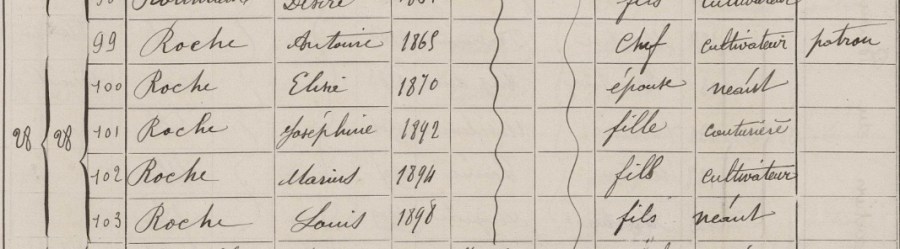 Désiré fils cultivateur
99 Roche Antoine 1865 Chef cultivateur patron
100 Roche Elisé 1870 épouse néant
28 28 101 Roche Joséphine 1892 fille couturière
102 Roche Marius 1894 fils cultivateur
103 Roche Louis 1898 fils néant